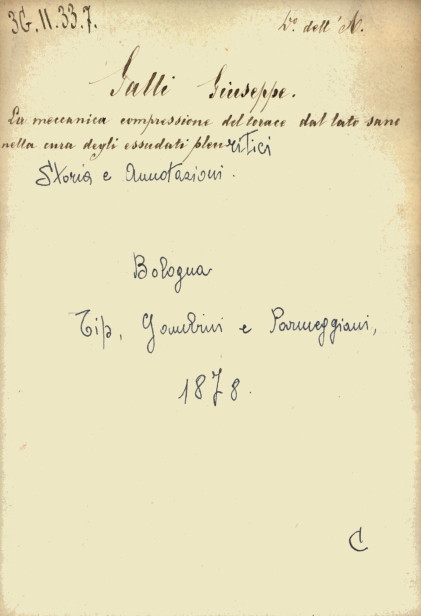 3G.II.33.7. Dº dell'A.
Galli Giuseppe.
La meccanica compressione del torace dal lato sano
nella cura degli essudati pleuritici
Storia e Annotazioni.
Bologna
Tip. Gamberini e Parmeggiani,
1878.
C